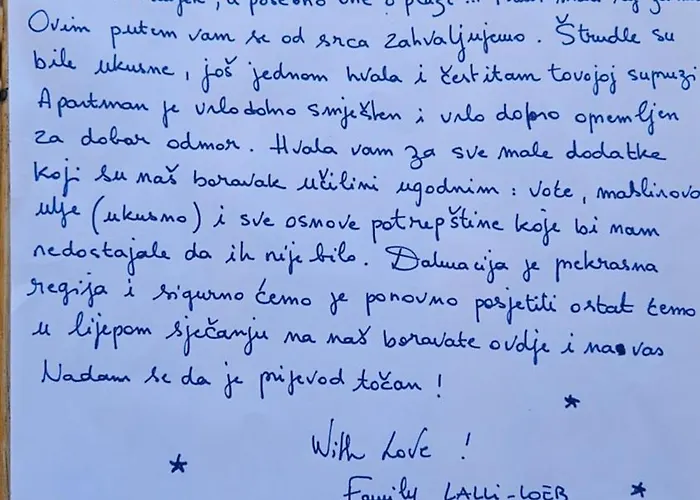 Ovim putem vam se od srca zahvaljujemo. Štrudle su
bile ukusne, još jednom hvala i čestitam tovojoj supruzi
Apartman je vrlo dobro smješten i vrlo dobro opremljen
za dobar odmor. Hvala vam za sve male dodatke
koji su naš boravak učilini ugodnim : voće, maslinovo
ulje (ukusno) i sve osnove potrepštine koje bi nam
nedostajale da ih nije bilo. Dalmacija je prekrasna
regija i sigurno ćemo je ponovno posjetiti ostat ćemo
u lijepom sjećanju na naš boravate ovdje i na vas
Nadam se da je prijevod točan !
With Love !
Family LALLI-LOËR